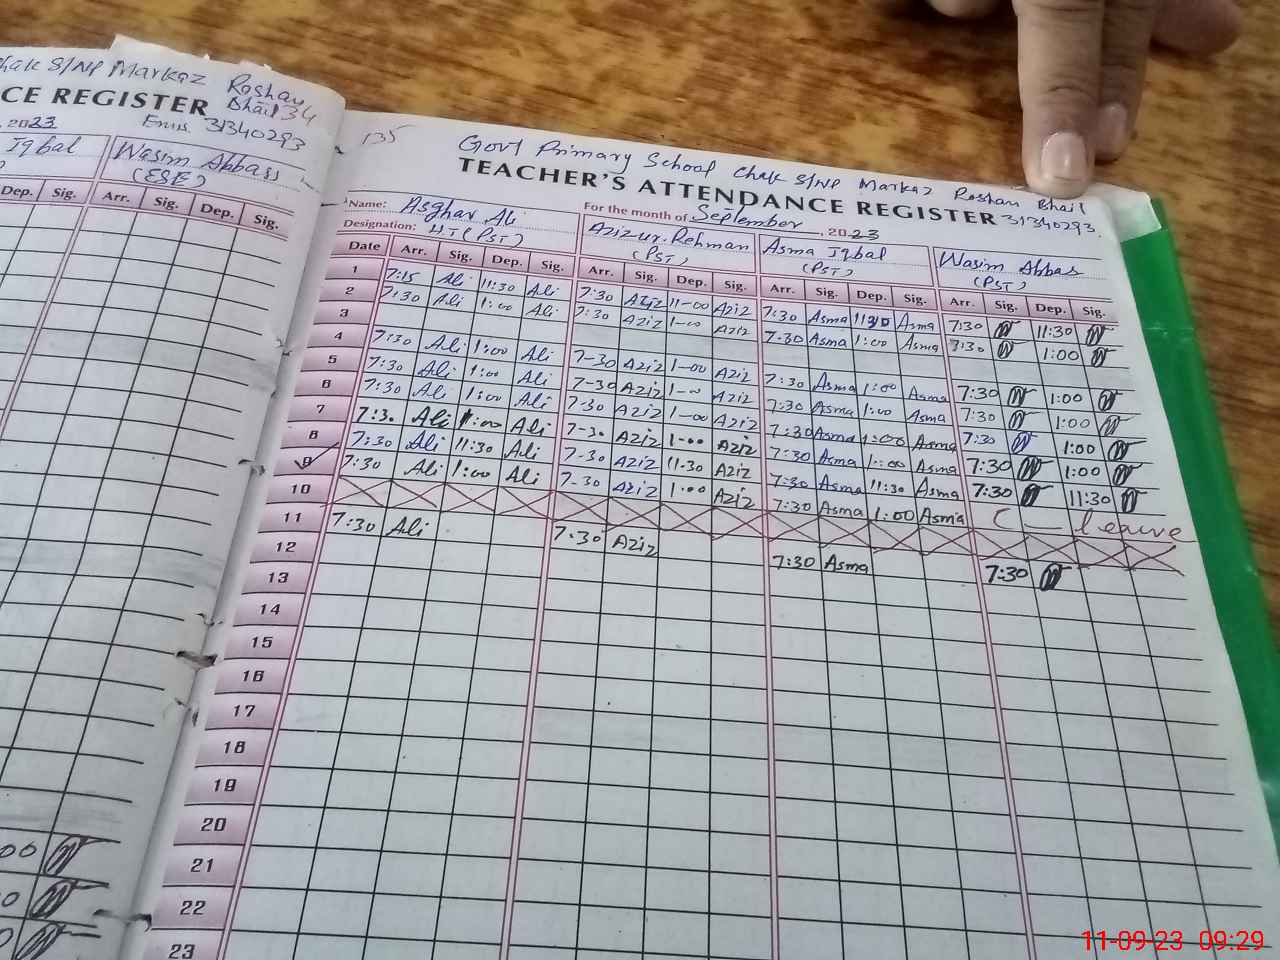 Chak S/NP Markaz Roshan
Bhail 34
CE REGISTER
Emis. 31340293
, 2023
Iqbal
Wasim Abbass
(ESE)
Dep. Sig. Arr. Sig. Dep. Sig.
00
0
135
Govt Primary School Chak S/NP Markaz Roshan Bhail
TEACHER'S ATTENDANCE REGISTER 31340293.
Name: Asghar Ali
For the month of September, 2023
Designation: HT (PST)
Aziz-ur-Rehman (PST)
Asma Iqbal (PST)
Wasim Abbas (PST)
Date Arr. Sig. Dep. Sig. Arr. Sig. Dep. Sig. Arr. Sig. Dep. Sig. Arr. Sig. Dep. Sig.
1 7:15 Ali 11:30 Ali 7:30 Aziz 11-00 Aziz 7:30 Asma 11:30 Asma 7:30 11:30
2 7:30 Ali 1:00 Ali 7:30 Aziz 1-00 Aziz 7:30 Asma 1:00 Asma 7:30 1:00
3
4 7:30 Ali 1:00 Ali 7-30 Aziz 1-00 Aziz 7:30 Asma 1:00 Asma 7:30 1:00
5 7:30 Ali 1:00 Ali 7-30 Aziz 1-00 Aziz 7:30 Asma 1:00 Asma 7:30 1:00
6 7:30 Ali 1:00 Ali 7-30 Aziz 1-00 Aziz 7:30 Asma 1:00 Asma 7:30 1:00
7 7:30 Ali 1:00 Ali 7-30 Aziz 1-00 Aziz 7:30 Asma 1:00 Asma 7:30 1:00
8 7:30 Ali 11:30 Ali 7-30 Aziz 11-30 Aziz 7:30 Asma 11:30 Asma 7:30 11:30
9 7:30 Ali 1:00 Ali 7-30 Aziz 1-00 Aziz 7:30 Asma 1:00 Asma C - leave
10
11 7:30 Ali 7:30 Aziz 7:30 Asma 7:30
12
13
14
15
16
17
18
19
20
21
22
23
11-09-23 09:29